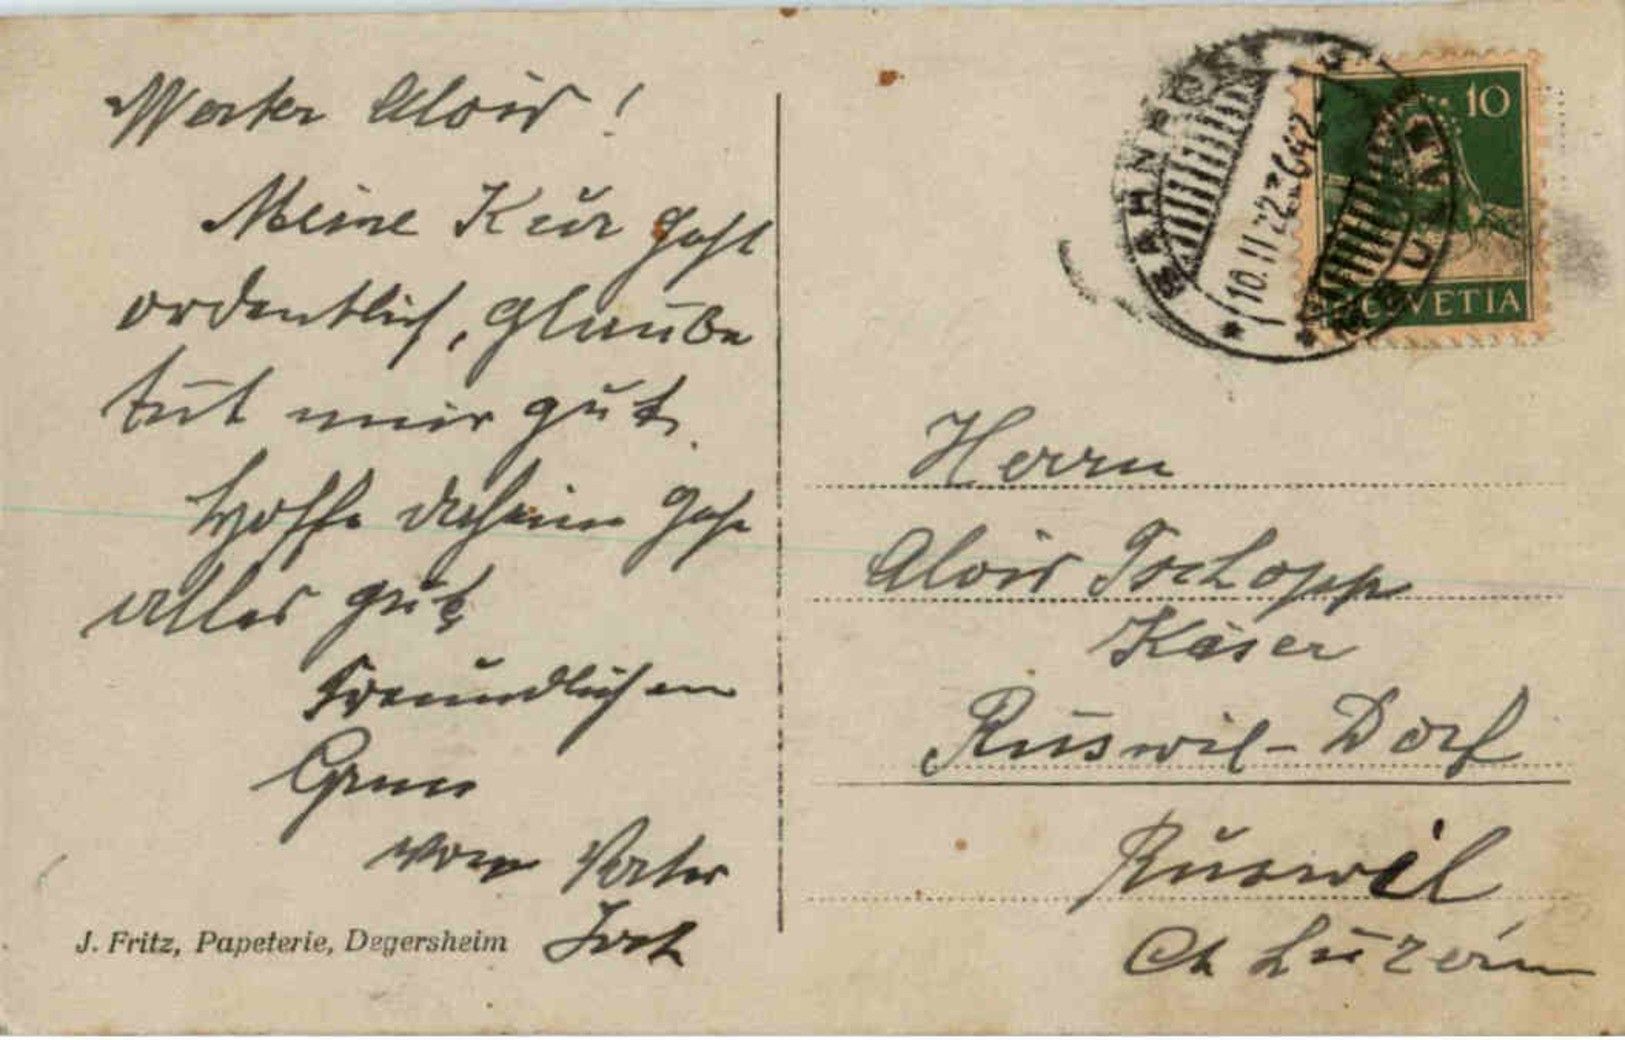 Werter Alois !
Meine Kur geht
ordentlich, glaube
tut mir gut.
Hoffe daheim gehe
alles gut
Freundlichen
Gruss
vom Vater
J. Fritz, Papeterie, Degersheim
10
HELVETIA
BAHNPOST
10.II 22
Herrn
Alois Tschopp
Käser
Ruswil-Dorf
Ruswil
Ct Luzern